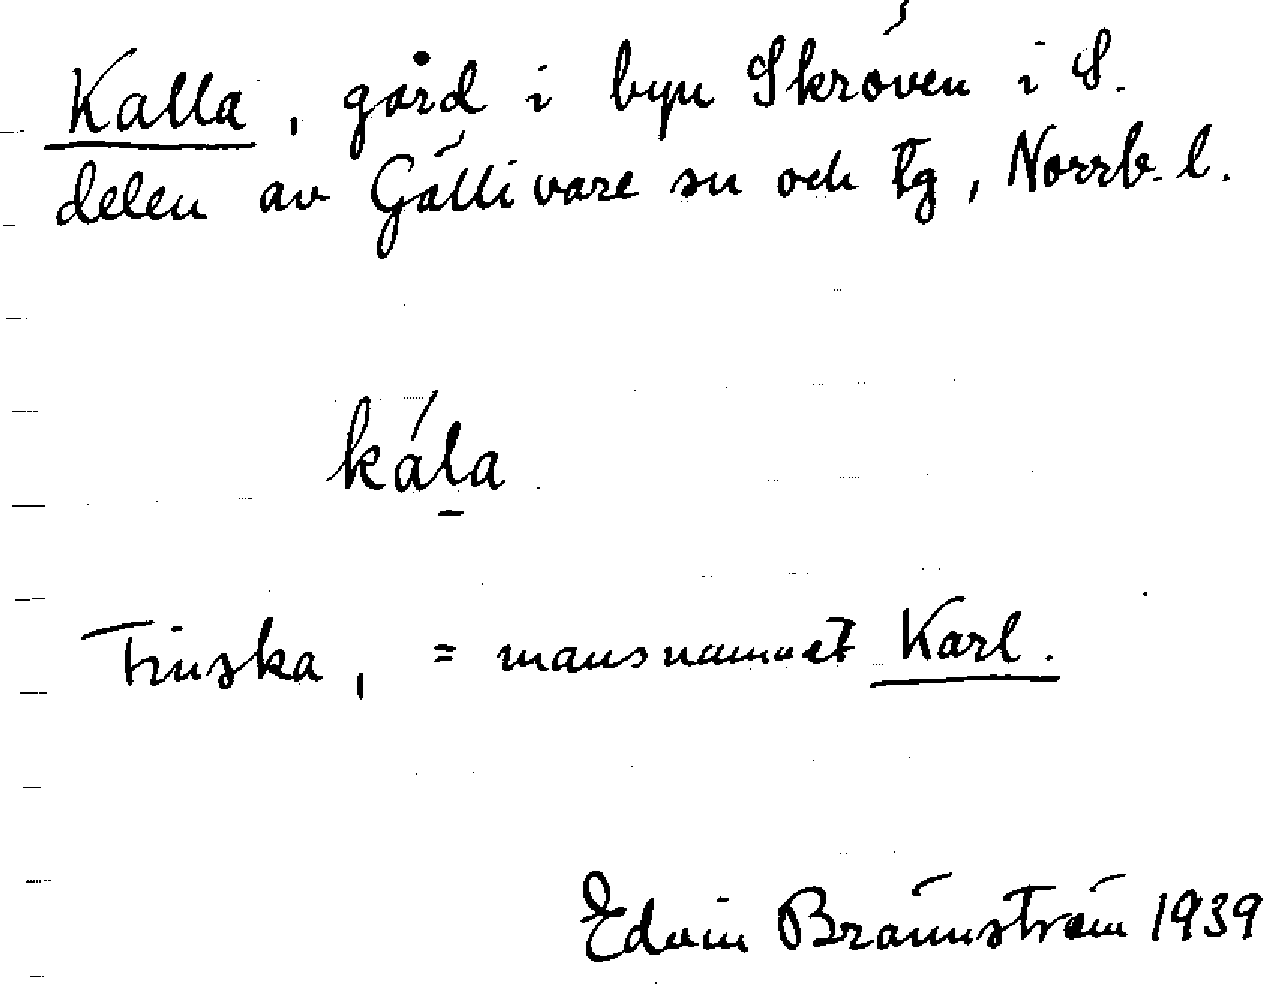 Kalla, gård i byn Skröven i S.
delen av Gällivare sn och tg, Norrb. l.
kála
Finska, = mansnamnet Karl.
Edvin Brännström 1939